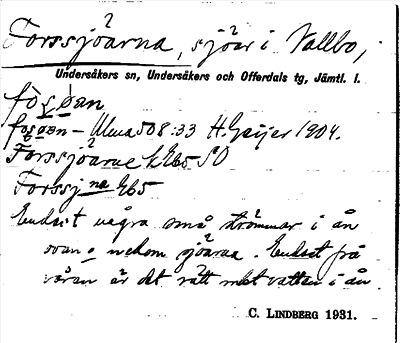 Forssjöarna, sjöar i Vallbo,
Undersåkers sn, Undersåkers och Offerdals tg, Jämtl. l.
fo̱s̱øa̱n
fos̱øa̱n – Ulma 508:33 H. Geijer 1904.
Forssjöarne k Eb5 SO
Forssjna Eb5
Endast några små strömmar i ån
ovan o nedom sjöarna. Endast på
våren är det rätt mkt vatten i ån.
C. LINDBERG 1931.